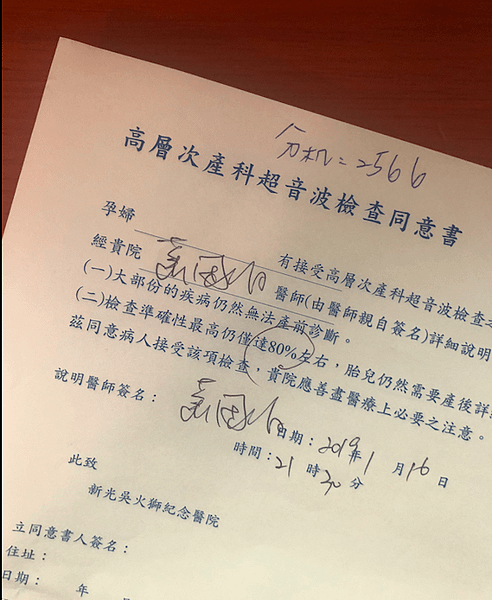 分机:2566
高層次產科超音波檢查同意書
孕婦 有接受高層次產科超音波檢查之
經貴院 醫師(由醫師親自簽名)詳細說明
(一)大部份的疾病仍然無法產前診斷。
(二)檢查準確性最高仍僅達80%左右，胎兒仍然需要產後詳
茲同意病人接受該項檢查，貴院應善盡醫療上必要之注意。
說明醫師簽名：
日期：2019年1月16日
時間：21時30分
此致
新光吳火獅紀念醫院
立同意書人簽名：
住址：
日期： 年